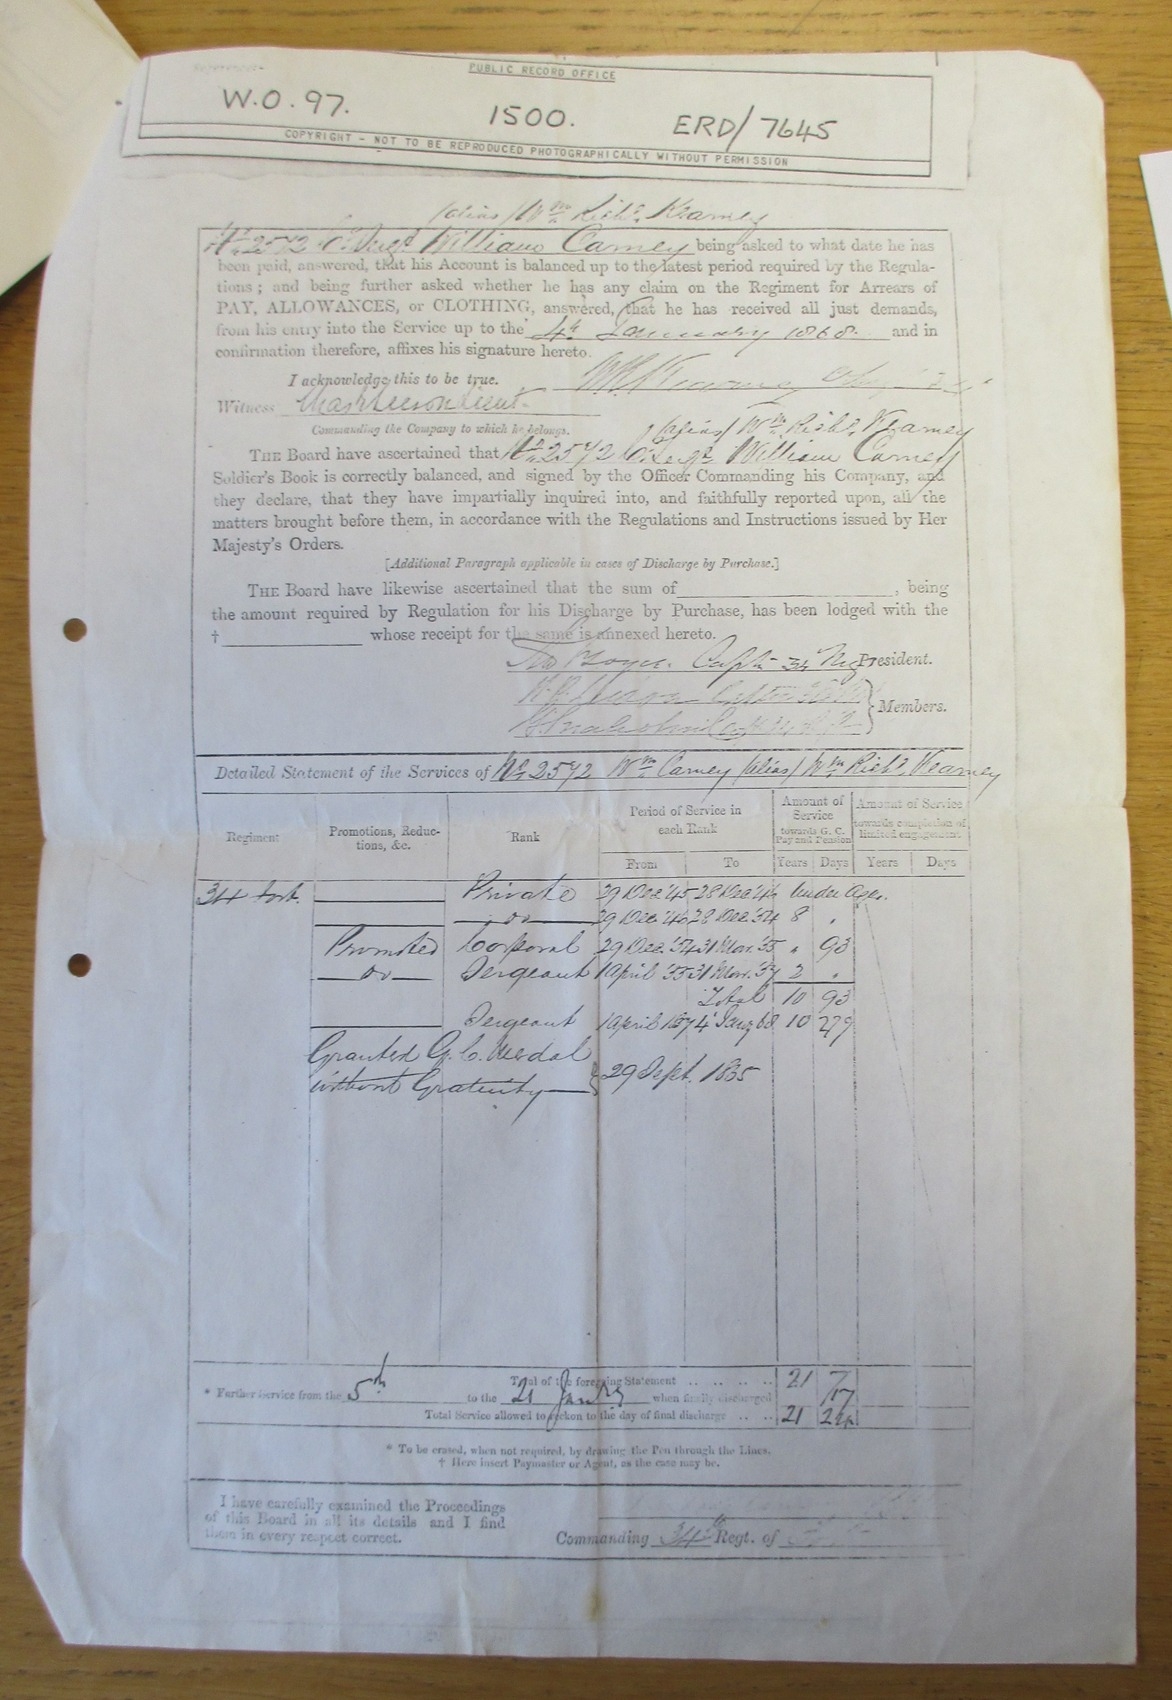 PUBLIC RECORD OFFICE
W.O. 97. 1500. ERD/7645
COPYRIGHT - NOT TO BE REPRODUCED PHOTOGRAPHICALLY WITHOUT PERMISSION
(alias) Wm Richd. Kearney
No 2572 William Carney being asked to what date he has
been paid, answered, that his Account is balanced up to the latest period required by the Regula-
tions; and being further asked whether he has any claim on the Regiment for Arrears of
PAY, ALLOWANCES, or CLOTHING, answered, that he has received all just demands,
from his entry into the Service up to the 4th January 1868. and in
confirmation therefore, affixes his signature hereto.
I acknowledge this to be true. Kearney
Witness Lieut.
Commanding the Company to which he belongs.
(alias) Wm Richd. Kearney
THE Board have ascertained that No 2572 William Carney
Soldier's Book is correctly balanced, and signed by the Officer Commanding his Company, and
they declare, that they have impartially inquired into, and faithfully reported upon, all the
matters brought before them, in accordance with the Regulations and Instructions issued by Her
Majesty's Orders.
[Additional Paragraph applicable in cases of Discharge by Purchase.]
THE Board have likewise ascertained that the sum of , being
the amount required by Regulation for his Discharge by Purchase, has been lodged with the
† whose receipt for the same is annexed hereto.
Capt. 34 President.
Members.
Detailed Statement of the Services of No 2572 Wm Carney (alias) Wm Richd. Kearney
Regiment Promotions, Reduc-tions, &c. Rank Period of Service in each Rank Amount of Service towards G. C. Pay and Pension Amount of Service towards completion of limited engagement
From To Years Days Years Days
34 Foot. Private 29 Dec '45 28 Dec '46 Under Age.
do 29 Dec '46 28 Dec '54 8 "
Promoted Corporal 29 Dec. '54 31 Mar. '55 " 93
do Sergeant 1 April '55 31 Mar. '57 2 "
Total 10 93
Sergeant 1 April 1857 4 Jany 68 10 279
Granted G. C. Medal
without Gratuity } 29 Sept. 1865
Total of the foregoing Statement 21 7
* Further Service from the 5th to the 21 Jany when finally discharged 17
Total Service allowed to reckon to the day of final discharge 21 24
* To be erased, when not required, by drawing the Pen through the Lines.
† Here insert Paymaster or Agent, as the case may be.
I have carefully examined the Proceedings
of this Board in all its details and I find
them in every respect correct.
Commanding 34th Regt. of